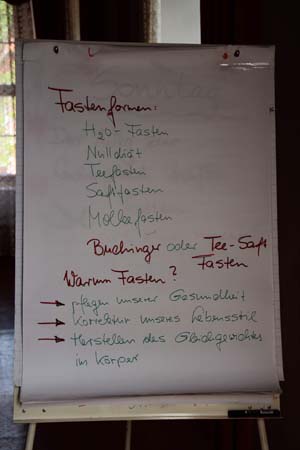 Fastenformen:
H2O-Fasten
Nulldiät
Teefasten
Saftfasten
Molkefasten
Buchinger oder Tee-Saft
Fasten
Warum Fasten?
→ pflegen unserer Gesundheit
→ Korrektur unseres Lebensstil
→ Herstellen des Gleichgewichtes
im Körper